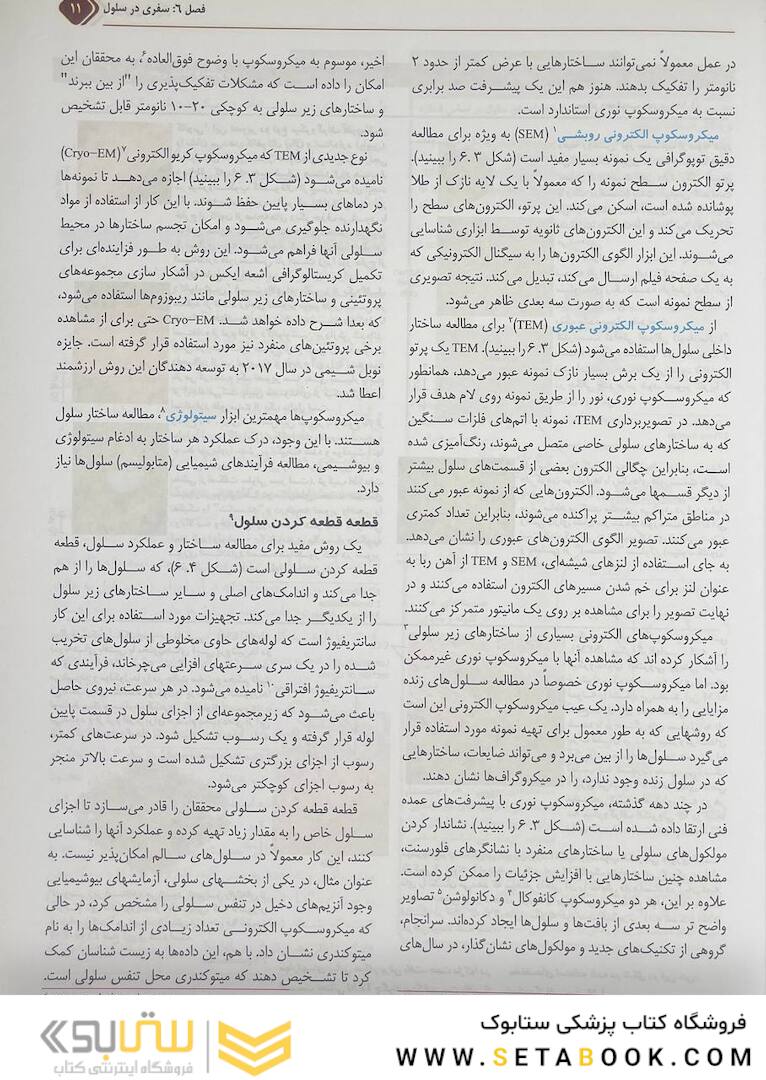 فصل ٦: سفری در سلول
١١
در عمل معمولاً نمی‌توانند ساختارهایی با عرض کمتر از حدود ۲
نانومتر را تفکیک بدهند. هنوز هم این یک پیشرفت صد برابری
نسبت به میکروسکوپ نوری استاندارد است.
میکروسکوپ الکترونی روبشی¹ (SEM) به ویژه برای مطالعه
دقیق توپوگرافی یک نمونه بسیار مفید است (شکل ۳ .۶ را ببینید).
پرتو الکترون سطح نمونه را که معمولاً با یک لایه نازک از طلا
پوشانده شده است، اسکن می‌کند. این پرتو، الکترون‌های سطح را
تحریک می‌کند و این الکترون‌های ثانویه توسط ابزاری شناسایی
می‌شوند. این ابزار الگوی الکترون‌ها را به سیگنال الکترونیکی که
به یک صفحه فیلم ارسال می‌کند، تبدیل می‌کند. نتیجه تصویری
از سطح نمونه است که به صورت سه بعدی ظاهر می‌شود.
از میکروسکوپ الکترونی عبوری (TEM)² برای مطالعه ساختار
داخلی سلول‌ها استفاده می‌شود (شکل ۳. ۶ را ببینید). TEM یک پرتو
الکترونی را از یک برش بسیار نازک نمونه عبور می‌دهد، همانطور
که میکروسکوپ نوری، نور را از طریق نمونه روی لام هدف قرار
می‌دهد. در تصویربرداری TEM، نمونه با اتم‌های فلزات سنگین
که به ساختارهای سلولی خاصی متصل می‌شوند، رنگ‌آمیزی شده
است، بنابراین چگالی الکترون بعضی از قسمت‌های سلول بیشتر
از دیگر قسمها می‌شود. الکترون‌هایی که از نمونه عبور می‌کنند
در مناطق متراکم بیشتر پراکنده می‌شوند، بنابراین تعداد کمتری
عبور می‌کنند. تصویر الگوی الکترون‌های عبوری را نشان می‌دهد.
به جای استفاده از لنزهای شیشه‌ای، SEM و TEM از آهن ربا به
عنوان لنز برای خم شدن مسیرهای الکترون استفاده می‌کنند و در
نهایت تصویر را برای مشاهده بر روی یک مانیتور متمرکز می‌کنند.
میکروسکوپ‌های الکترونی بسیاری از ساختارهای زیر سلولی³
را آشکار کرده اند که مشاهده آنها با میکروسکوپ نوری غیرممکن
بود. اما میکروسکوپ نوری خصوصاً در مطالعه سلول‌های زنده
مزایایی را به همراه دارد. یک عیب میکروسکوپ الکترونی این است
که روشهایی که به طور معمول برای تهیه نمونه مورد استفاده قرار
می‌گیرد سلول‌ها را از بین می‌برد و می‌تواند ضایعات، ساختارهایی
که در سلول زنده وجود ندارد، را در میکروگراف‌ها نشان دهند.
در چند دهه گذشته، میکروسکوپ نوری با پیشرفت‌های عمده
فنی ارتقا داده شده است (شکل ۳. ۶ را ببینید). نشاندار کردن
مولکول‌های سلولی یا ساختارهای منفرد با نشانگرهای فلورسنت،
مشاهده چنین ساختارهایی با افزایش جزئیات را ممکن کرده است.
علاوه بر این، هر دو میکروسکوپ کانفوکال⁴ و دکانولوشن⁵ تصاویر
واضح تر سه بعدی از بافت‌ها و سلول‌ها ایجاد کرده‌اند. سرانجام،
گروهی از تکنیک‌های جدید و مولکول‌های نشان‌گذار، در سال‌های
اخیر، موسوم به میکروسکوپ با وضوح فوق‌العاده⁶، به محققان این
امکان را داده است که مشکلات تفکیک‌پذیری را "از بین ببرند"
و ساختارهای زیر سلولی به کوچکی ۲۰-۱۰ نانومتر قابل تشخیص
شود.
نوع جدیدی از TEM که میکروسکوپ کریو الکترونی⁷ (Cryo-EM)
نامیده می‌شود (شکل ۳. ۶ را ببینید) اجازه می‌دهد تا نمونه‌ها
در دماهای بسیار پایین حفظ شوند. با این کار از استفاده از مواد
نگهدارنده جلوگیری می‌شود و امکان تجسم ساختارها در محیط
سلولی آنها فراهم می‌شود. این روش به طور فزاینده‌ای برای
تکمیل کریستالوگرافی اشعه ایکس در آشکار سازی مجموعه‌های
پروتئینی و ساختارهای زیر سلولی مانند ریبوزوم‌ها استفاده می‌شود،
که بعدا شرح داده خواهد شد. Cryo-EM حتی برای از مشاهده
برخی پروتئین‌های منفرد نیز مورد استفاده قرار گرفته است. جایزه
نوبل شیمی در سال ۲۰۱۷ به توسعه دهندگان این روش ارزشمند
اعطا شد.
میکروسکوپ‌ها مهمترین ابزار سیتولوژی⁸، مطالعه ساختار سلول
هستند. با این وجود، درک عملکرد هر ساختار به ادغام سیتولوژی
و بیوشیمی، مطالعه فرآیندهای شیمیایی (متابولیسم) سلول‌ها نیاز
دارد.
قطعه قطعه کردن سلول⁹
یک روش مفید برای مطالعه ساختار و عملکرد سلول، قطعه
قطعه کردن سلولی است (شکل ۴. ۶)، که سلول‌ها را از هم
جدا می‌کند و اندامک‌های اصلی و سایر ساختارهای زیر سلول
را از یکدیگر جدا می‌کند. تجهیزات مورد استفاده برای این کار
سانتریفیوژ است که لوله‌های حاوی مخلوطی از سلول‌های تخریب
شده را در یک سری سرعتهای افزایی می‌چرخاند، فرآیندی که
سانتریفیوژ افتراقی¹⁰ نامیده می‌شود. در هر سرعت، نیروی حاصل
باعث می‌شود که زیرمجموعه‌ای از اجزای سلول در قسمت پایین
لوله قرار گرفته و یک رسوب تشکیل شود. در سرعت‌های کمتر،
رسوب از اجزای بزرگتری تشکیل شده است و سرعت بالاتر منجر
به رسوب اجزای کوچکتر می‌شود.
قطعه قطعه کردن سلولی محققان را قادر می‌سازد تا اجزای
سلول خاص را به مقدار زیاد تهیه کرده و عملکرد آنها را شناسایی
کنند، این کار معمولاً در سلول‌های سالم امکان‌پذیر نیست. به
عنوان مثال، در یکی از بخشهای سلولی، آزمایشهای بیوشیمیایی
وجود آنزیم‌های دخیل در تنفس سلولی را مشخص کرد، در حالی
که میکروسکوپ الکترونی تعداد زیادی از اندامک‌ها را به نام
میتوکندری نشان داد. با هم، این داده‌ها به زیست شناسان کمک
کرد تا تشخیص دهند که میتوکندری محل تنفس سلولی است.
فروشگاه کتاب پزشکی ستابوک
WWW.SETABOOK.COM
ستابوک
فروشگاه اینترنتی کتاب